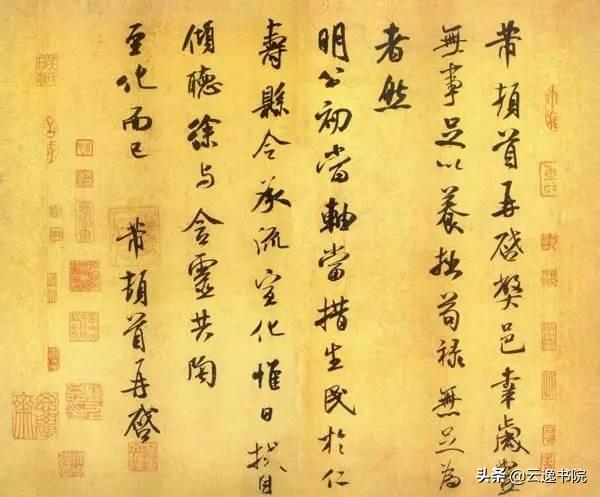 芾頓首再啓弊邑幸歲豐
無事足以養拙苟禄無足為
者然
明公初當軸當措生民於仁
壽縣令承流宣化惟日拭目
傾聽徐与含靈共陶
至化而已 芾頓首再啓
头条 @云逸书院